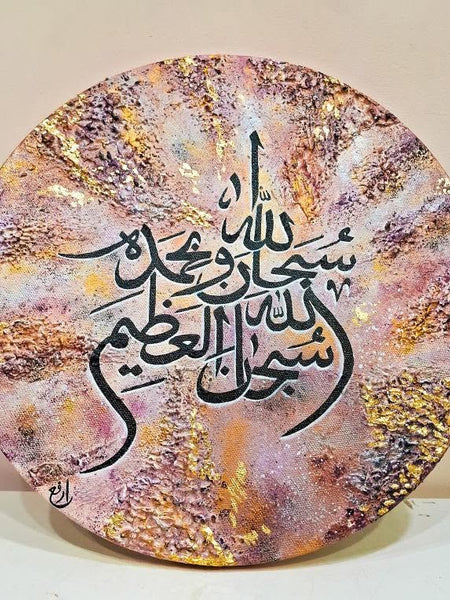 سُبحان الله وبحمده
سُبحان الله العظيم